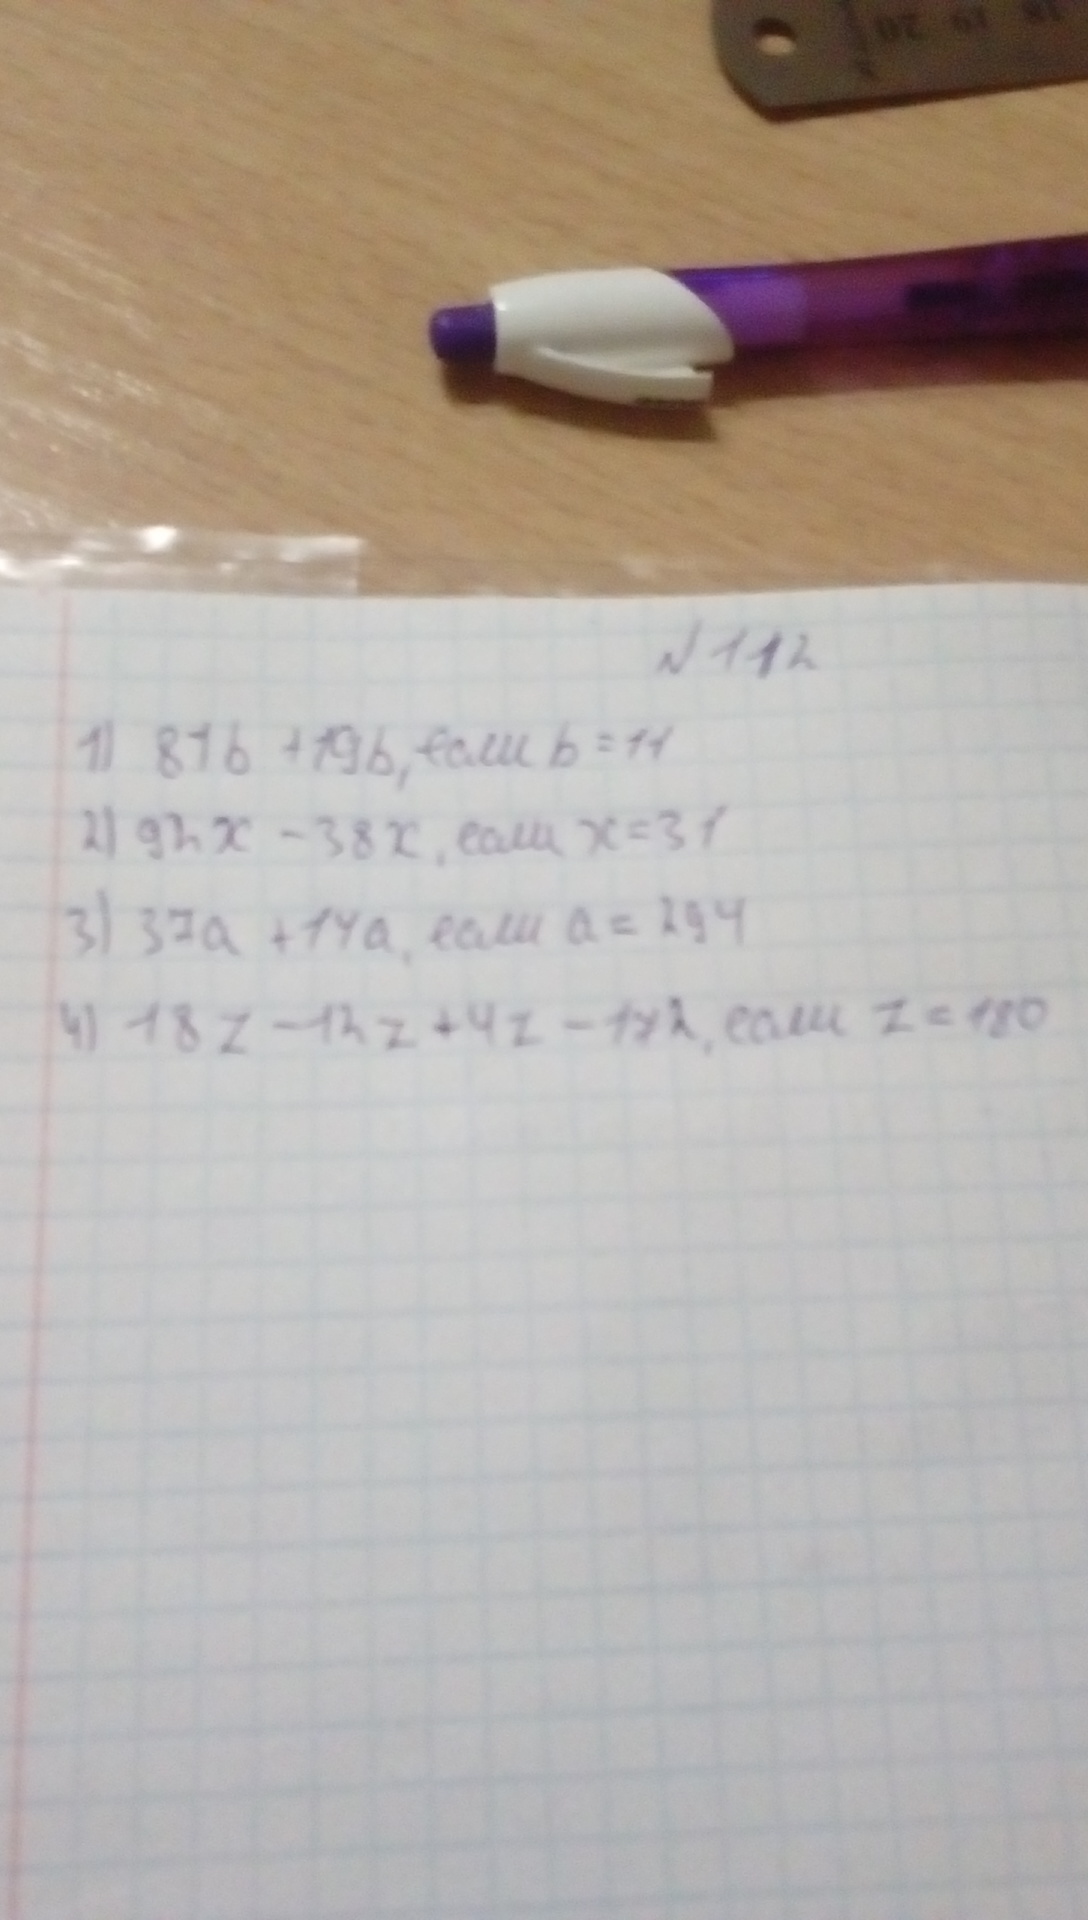 18 19 20
N 112
1) 81b + 19b, если b = 11
2) 92x - 38x, если x = 31
3) 37a + 14a, если a = 294
4) 18z - 12z + 4z - 172, если z = 180